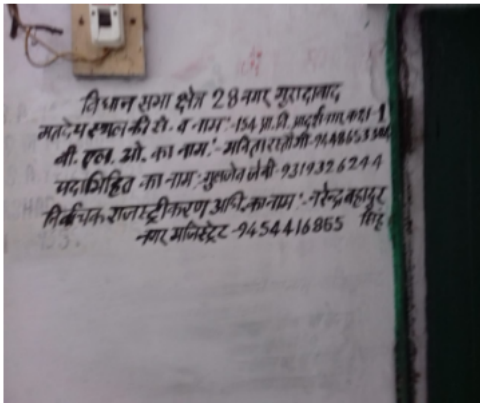 विधान सभा क्षेत्र 28 नगर मुरादाबाद
मतदेय स्थल की सं. व नाम:-154 प्रा. वि. आदर्श नगर, कक्ष-1
बी. एल. ओ. का नाम:- सविता रस्तोगी-
पदाभिहित का नाम:- जैवी-9319326244
निर्वाचक राजस्ट्रीकरण अधि. का नाम:- नरेन्द्र बहादुर
सिंह
नगर मजिस्ट्रेट-9454416865